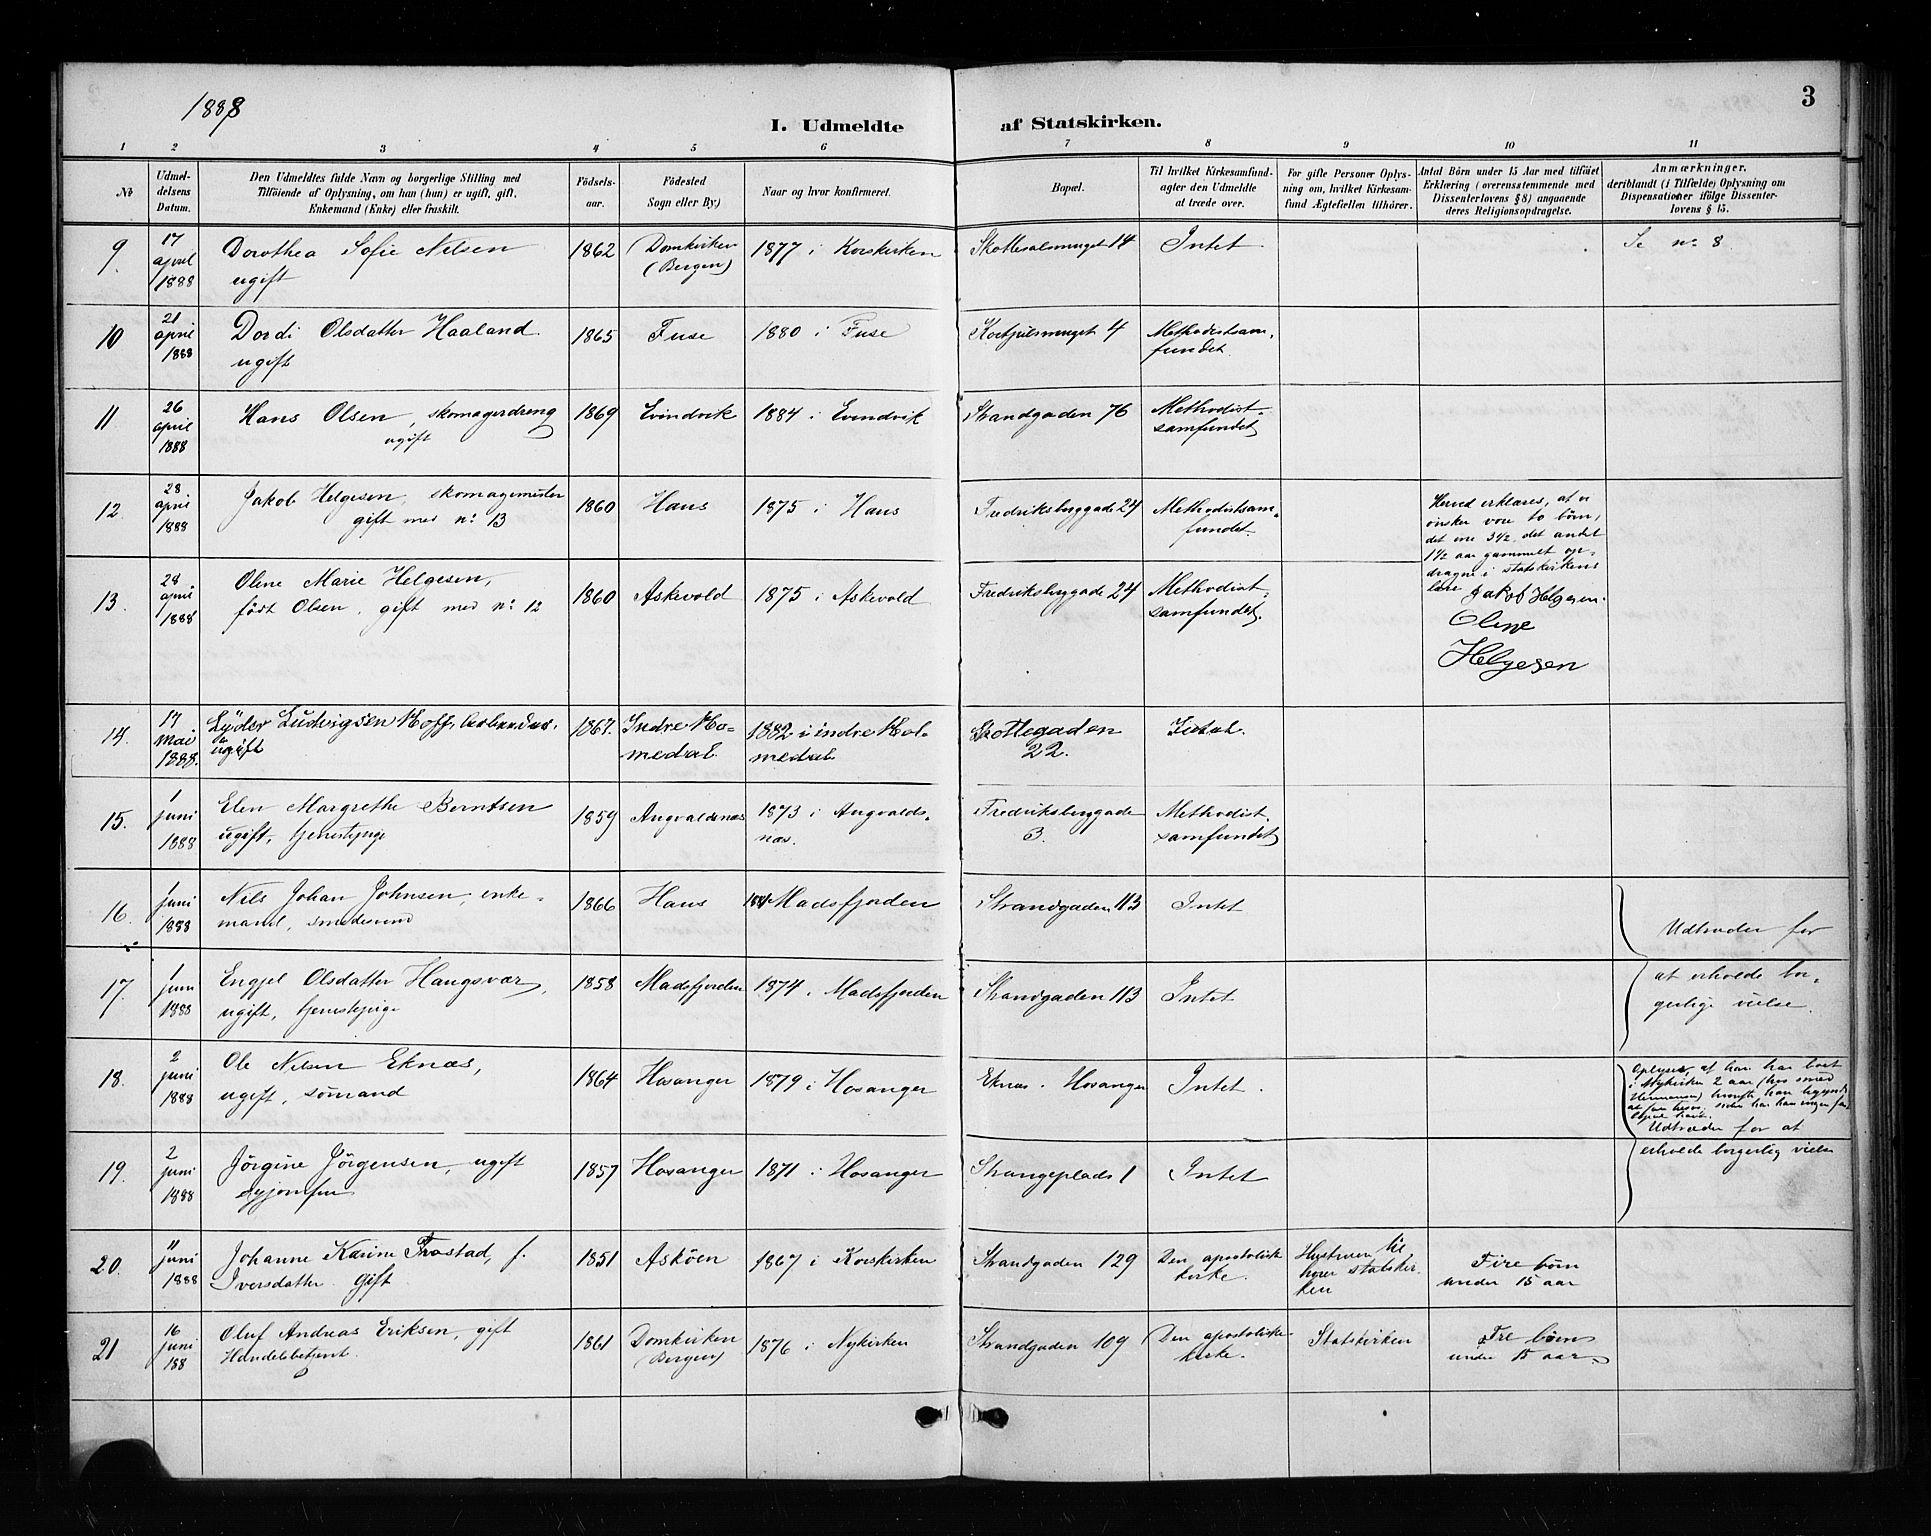 1888
3
I. Udmeldte af Statskirken.
1 2 3 4 5 6 7 8 9 10 11
№
Udmel-
delsens
Datum.
Den Udmeldtes fulde Navn og borgerlige Stilling med
Tilföiende af Oplysning, om han (hun) er ugift, gift,
Enkemand (Enke) eller fraskilt.
Födsels-
aar.
Födested
Sogn eller By.)
Naar og hvor konfirmeret.
Bopæl.
Til hvilket Kirkesamfund-
agter den Udmeldte
at træde over.
For gifte Personer Oplys-
ning om, hvilket Kirkesam-
fund Ægtefællen tilhörer.
Antal Börn under 15 Aar med tilföiet
Erklæring (overensstemmende med
Dissenterlovens § 8) angaaende
deres Religionsopdragelse.
Anmærkninger.
deriblandt (i Tilfælde) Oplysning om
Dispensationer ifölge Dissenter-
lovens § 15.
9.
17
april
1888
Dorothea Sofie Nilsen
ugift
1862
Domkirken
(Bergen)
1877 i Korskirken
Skottesalsmuget 14
Intet.
Se no 8.
10
21
april
1888
Dordi Olsdatter Haaland.
ugift
1865
Fuse
1880 i Fuse
4
Methodistsam-
fundet.
11.
26
april
1888
Hans Olsen, skomagerdreng
ugift
1869
Evindvik
1884 i Evindvik
Strandgaden 76
Methodist-
samfundet
12.
28
april
1888
Jakob Helgesen, skomagermester
gift med no 13
1860
Haus
1875 i Haus
Fredriksberggade 24
Methodistsam-
fundet.
Herved erklæres, at vi
önsker vore to börn,
det ene 3½, det andet
1½ aar gammelt op-
dragne i statskirkens
lære Jakob Helgesen.
Oline
Helgesen
13.
28
april
1888
Oline Marie Helgesen,
födt Olsen, gift med no 12
1860
Askevold
1875 i Askevold
Fredriksberggade 24
Methodist-
samfundet.
14.
17
Mai
1888.
Lyder Ludvigsen Hoff,
ugift
1867.
Indre Ho-
medal
1882 i indre Hol-
medal
Skottegaden
22.
Intet.
15.
1
juni
1888
Elen Margrethe Berntsen
ugift, tjenestepige
1859
Augvaldsnæs
1873 i Augvalds-
næs.
Fredriksberggade
3.
Methodist-
samfundet
16.
1
juni
1888
Nils Johan Johnsen, enke-
mand, smedesvend
1866
Haus
Madsfjorden
Strandgaden 113
Intet
Udtræder for
17.
1
juni
1888
Engel Olsdatter Haugsvær,
ugift, tjenestepige
1858
Madsfjorden
1874 i Madsfjorden
Strandgaden 113
Intet
at erholde bor-
gerlige vielse.
18.
2
juni
1888
Ole Nilsen Eknæs,
ugift, sömand
1864
Hosanger
1879 i Hosanger
Eknæs i Hosanger
Intet.
Oplyses at han har boet
i Nykirken 2 aar (hos smed
Hermansen)
Udtræder for at
19.
2
juni
1888
Jörgine Jörgensen, ugift
syjomfru
1857
Hosanger
1871 i Hosanger
Strangeplads 1
Intet
erholde borgerlig vielse
20.
11
juni
1888
Johanne Karine Frostad, f.
Iversdatter gift
1851
Asköen
1867 i Korskirken
Strandgaden 129
Den apostoliske
kirke.
til
hører statskir-
ken
Fire börn
under 15 aar
21
16
juni
188
Oluf Andreas Eriksen, gift
Handelsbetjent
1861
Domkirken
(Bergen)
1876 i Nykirken
Strandgaden 109
Den apostoliske
kirke.
Statskirken
Tre börn
under 15 aar.